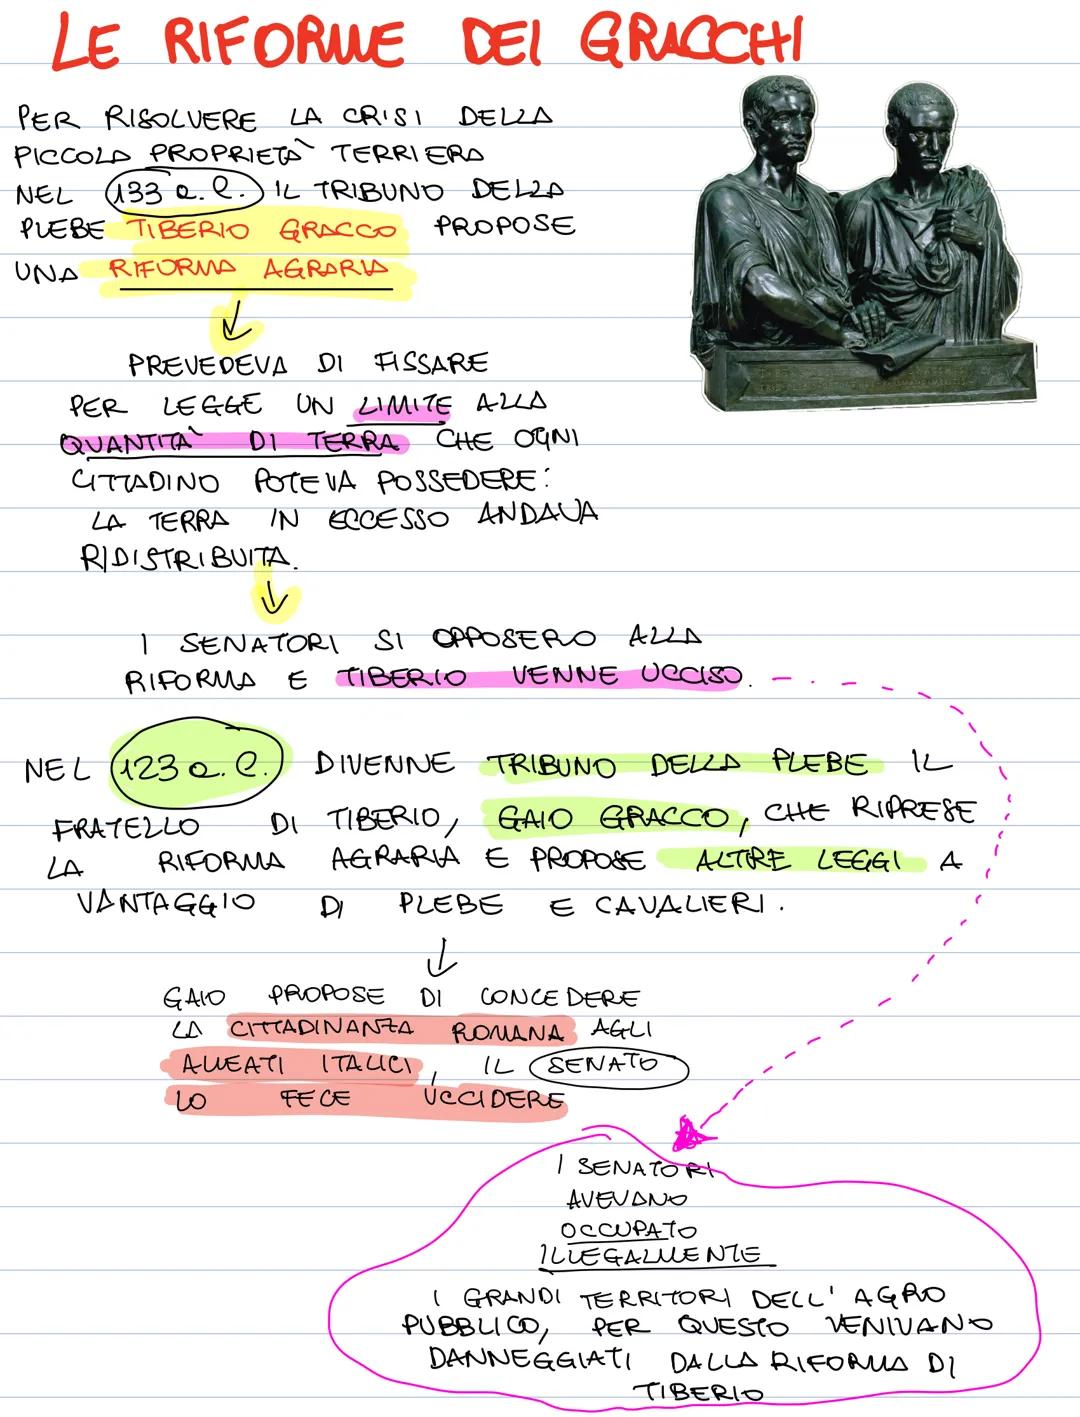 LE RIFORME DEI GRACCHI
PER RISOLVERE LA CRISI DELLA
PICCOLA PROPRIETÀ TERRIERA
NEL 133 a.C. IL TRIBUNO DELLA
PLEBE TIBERIO GRACCO PROPOSE
UNA RIFORMA AGRARIA
PREVEDEVA DI FISSARE
PER LEGGE UN LIMITE ALLA
QUANTITÀ DI TERRA CHE OGNI
CITTADINO POTEVA POSSEDERE:
LA TERRA IN ECCESSO ANDAVA
RIDISTRIBUITA.
I SENATORI SI OPPOSERO ALLA
RIFORMA E TIBERIO VENNE UCCISO.
NEL 123 a.C. DIVENNE TRIBUNO DELLA PLEBE IL
FRATELLO DI TIBERIO, GAIO GRACCO, CHE RIPRESE
LA RIFORMA AGRARIA E PROPOSE ALTRE LEGGI A
VANTAGGIO DI PLEBE E CAVALIERI.
GAIO PROPOSE DI CONCEDERE
LA CITTADINANZA ROMANA AGLI
ALLEATI ITALICI, IL SENATO
LO FECE UCCIDERE
I SENATORI
AVEVANO
OCCUPATO
ILLEGALMENTE
I GRANDI TERRITORI DELL'AGRO
PUBBLICO, PER QUESTO VENIVANO
DANNEGGIATI DALLA RIFORMA DI
TIBERIO